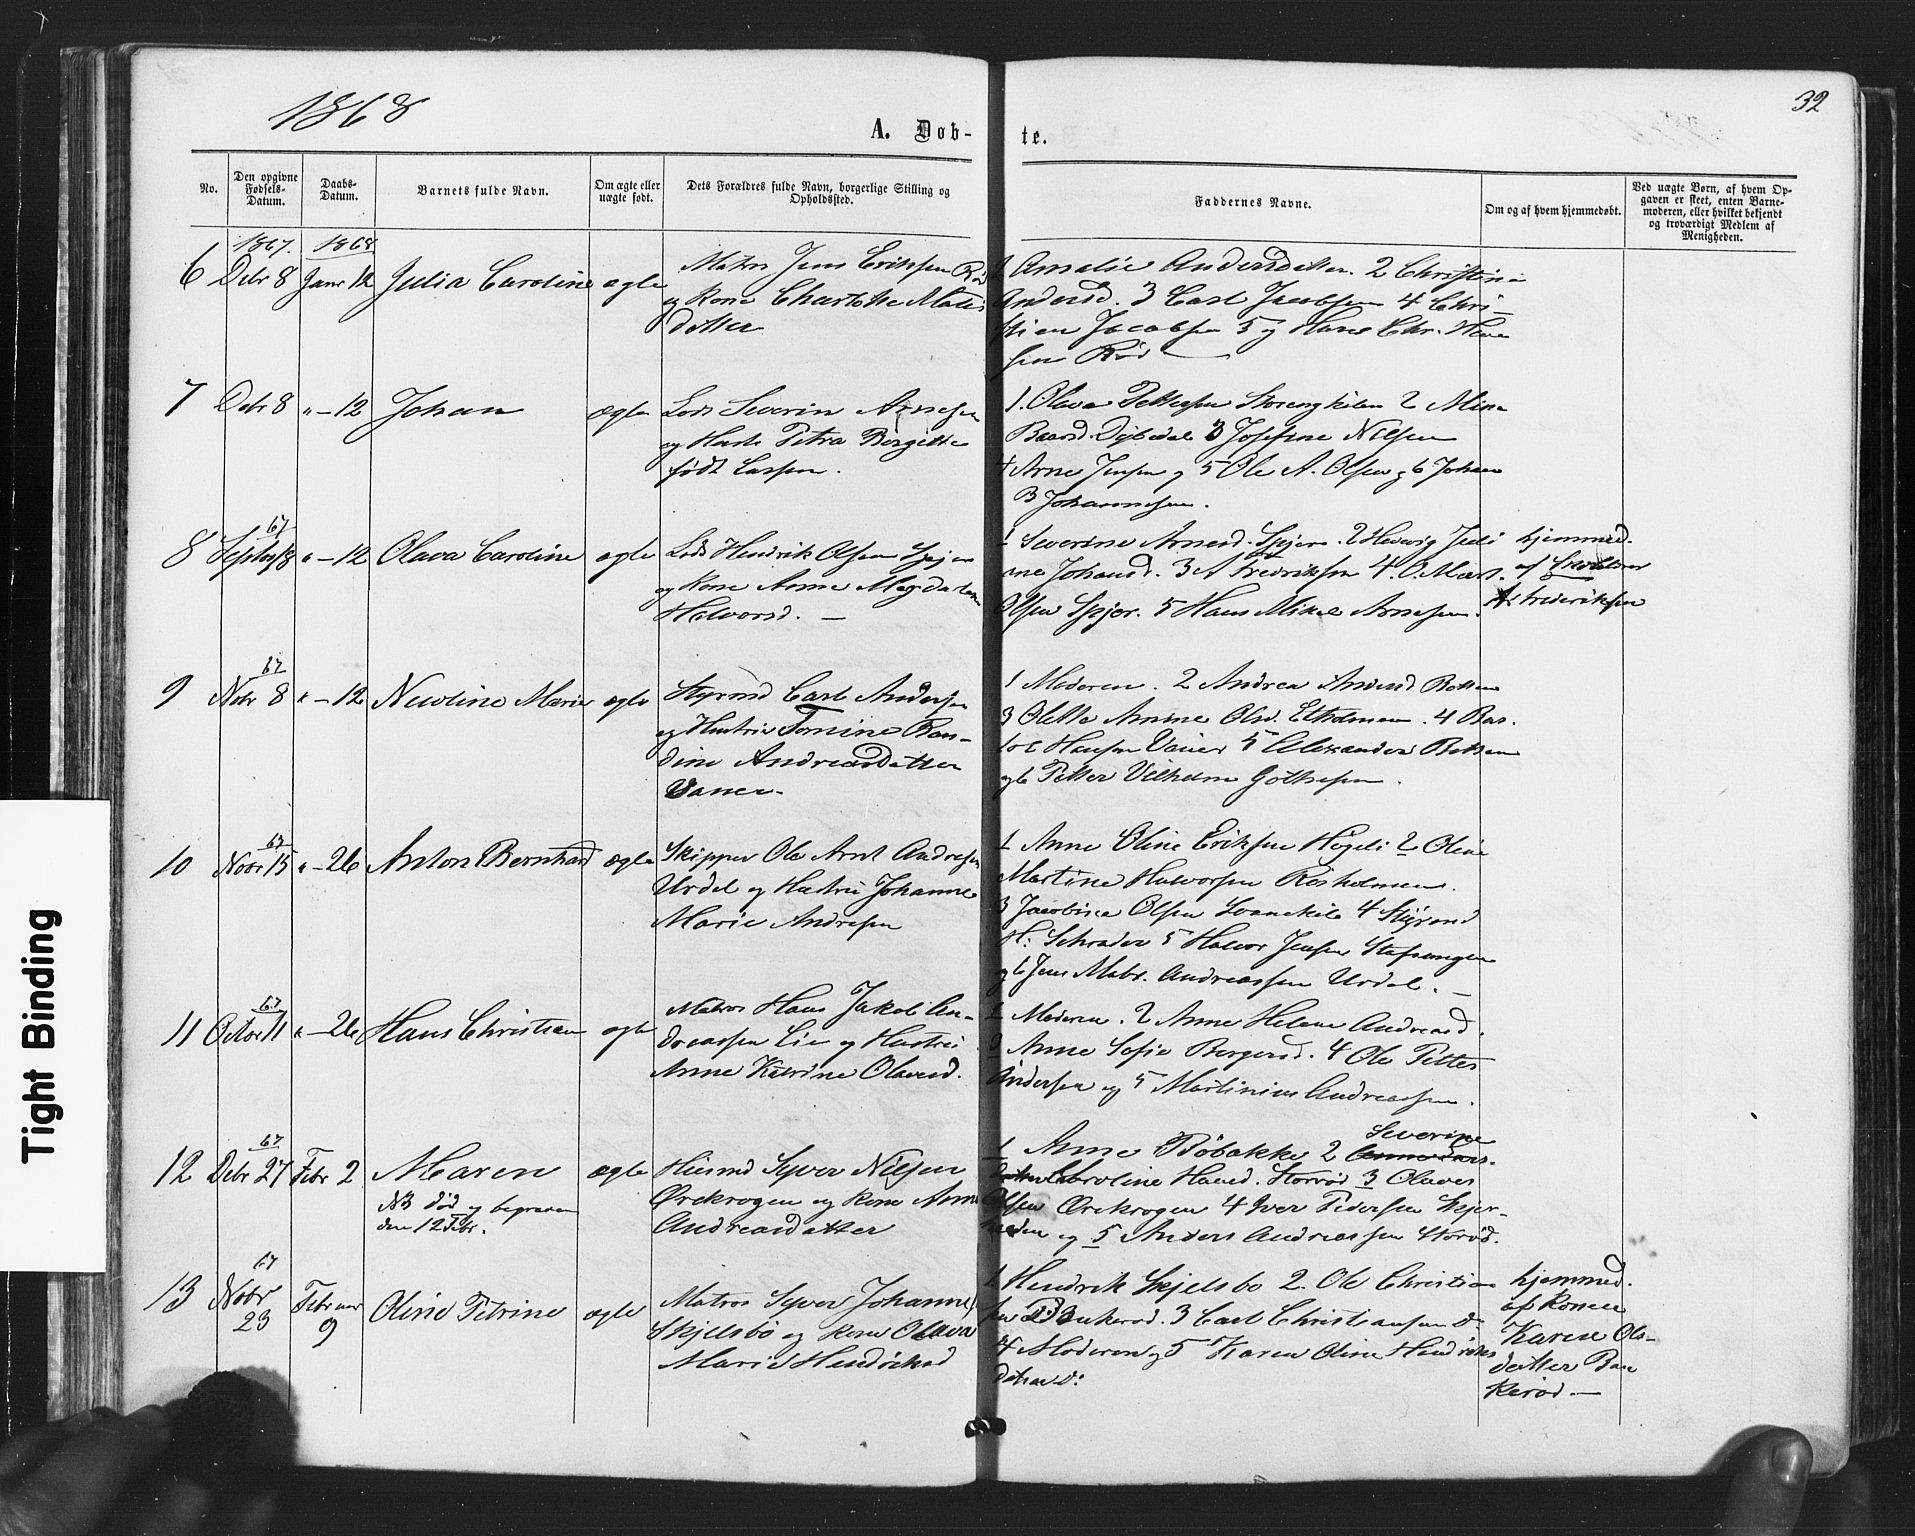 1868
32
A. Døb-
te.
No.
Den opgivne Fødsels-Datum.
Daabs-Datum.
Barnets fulde Navn.
Om ægte eller uægte født.
Dets Forældres fulde Navn, borgerlige Stilling og Opholdssted.
Faddernes Navne.
Om og af hvem hjemmedøbt.
Ved uægte Børn, af hvem Op-
gaven er skeet, enten Barne-
moderen, eller hvilket bekjendt
og troværdigt Medlem af
Menigheden.
1867. 1868
6 Debr 8 Janr 12 Julia Caroline ægte
Matros Jens Eriksen Rød
og Kone Charlotte Mathis
datter
1 Amalie Andersdatter. 2 Christine
Andersd. 3 Carl Jacobsen 4 Chri-
stian Jacobsen 5 og Hans Chr. Han
sen Rød
7 Debr 8 " - 12 Johan ægte
Lods Severin Arnesen
og Hustr Petra Birgitte
født Larsen.
1. Olava Pettersen Storengkilen 2 Mina
Baard. Dybedal 3 Josefine Nilsen
4 Arne Jensen og 5 Ole A. Olsen og 6 Johan
B Johannesen.
67
8 Septbr 8 " - 12 Olava Caroline ægte
Lods Hendrik Olsen Spjær
og Kone Anne Magdalene
Halvorsd. -
1 Severine Arnesd. Spjær. 2 Hedevig Juli
ne Johansd. 3 A Fredriksen 4. O. Mart.
Olsen Spjær. 5 Hans Mikal Arnesen.
hjemmed.
af
A: Frederiksen
67
9 Nobr 8 " - 12 Newline Marie ægte
Styrmd Carl Andersen
og Hustrie Tomine Ber-
dine Andreasdatter
Vauer.
1 Moderen. 2 Andrea Andersd Bakken
3 Olette Amine Olsd. Elholmen. 4 Bar.
tol Hansen Vauer 5 Alexander Bakken
og 6 Petter Vilhelm Gothesen.
67
10 Nobr 15 " - 26 Anton Bernhard ægte
Skipper Ole Arnt Andresen
Urdal og Hustru Johanne
Marie Andresen
1 Anne Oline Eriksen Høgeli 2 Oline
Martine Halvorsen Røsholmen.
3 Jacobine Olsen Svanekil 4 Styrmd
H: Schrader 5 Halvor Jensen Stafsengen
og 6 Jens Mabr. Andreassen Urdal. -
67
11 Octbr 11 " - 26 Hans Christian ægte
Matros Hans Jakob An-
dreassen Lie og Hustru
Anne Katrine Olavesd.
1 Moderen. 2 Anne Helene Andreasd.
3 Anne Sofie Borgersd. 4 Ole Petter
Andersen og 5 Martinius Andreassen.
67
12 Debr 27 Febr 2 Maren ægte
NB død og begraven
den 12 Febr.
Huusmd Syver Nilsen
Ørekrogen og Kone Anne
Andreasdatter
Severine
1 Anne Bøbakke 2
Caroline Hansd. Storrød 3 Olaves
Olsen Ørekrogen 4 Iver Pedersen Skjær-
og 5 Anders Andreassen Storød.
67
13 Nobr 23 Februar 9 Oline Petrine ægte
Matros Syver Johannes.
Skjelsbo og Kone Olava
Marie Hendriksd
1 Hendrik Skjelsbo 2. Ole Christian
sen Bankerød. 3 Carl Christiansen d:
4 Moderen og 5 Karen Oline Hendriks
datter d:
hjemmed.
af Konen
Karen Ols-
datter Ban
kerød. -
Tight Binding